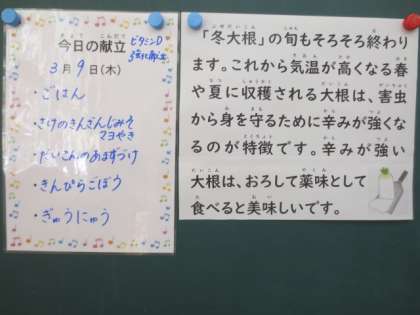 今日の献立 ビタミンD
強化献立
3月9日(木)
・ごはん
・さけのきんざんじみそ
マヨやき
・だいこんのあまずづけ
・きんぴらごぼう
・ぎゅうにゅう
「冬大根」の旬もそろそろ終わり
ます。これから気温が高くなる春
や夏に収穫される大根は、害虫
から身を守るために辛みが強くな
るのが特徴です。辛みが強い
大根は、おろして薬味として
食べると美味しいです。